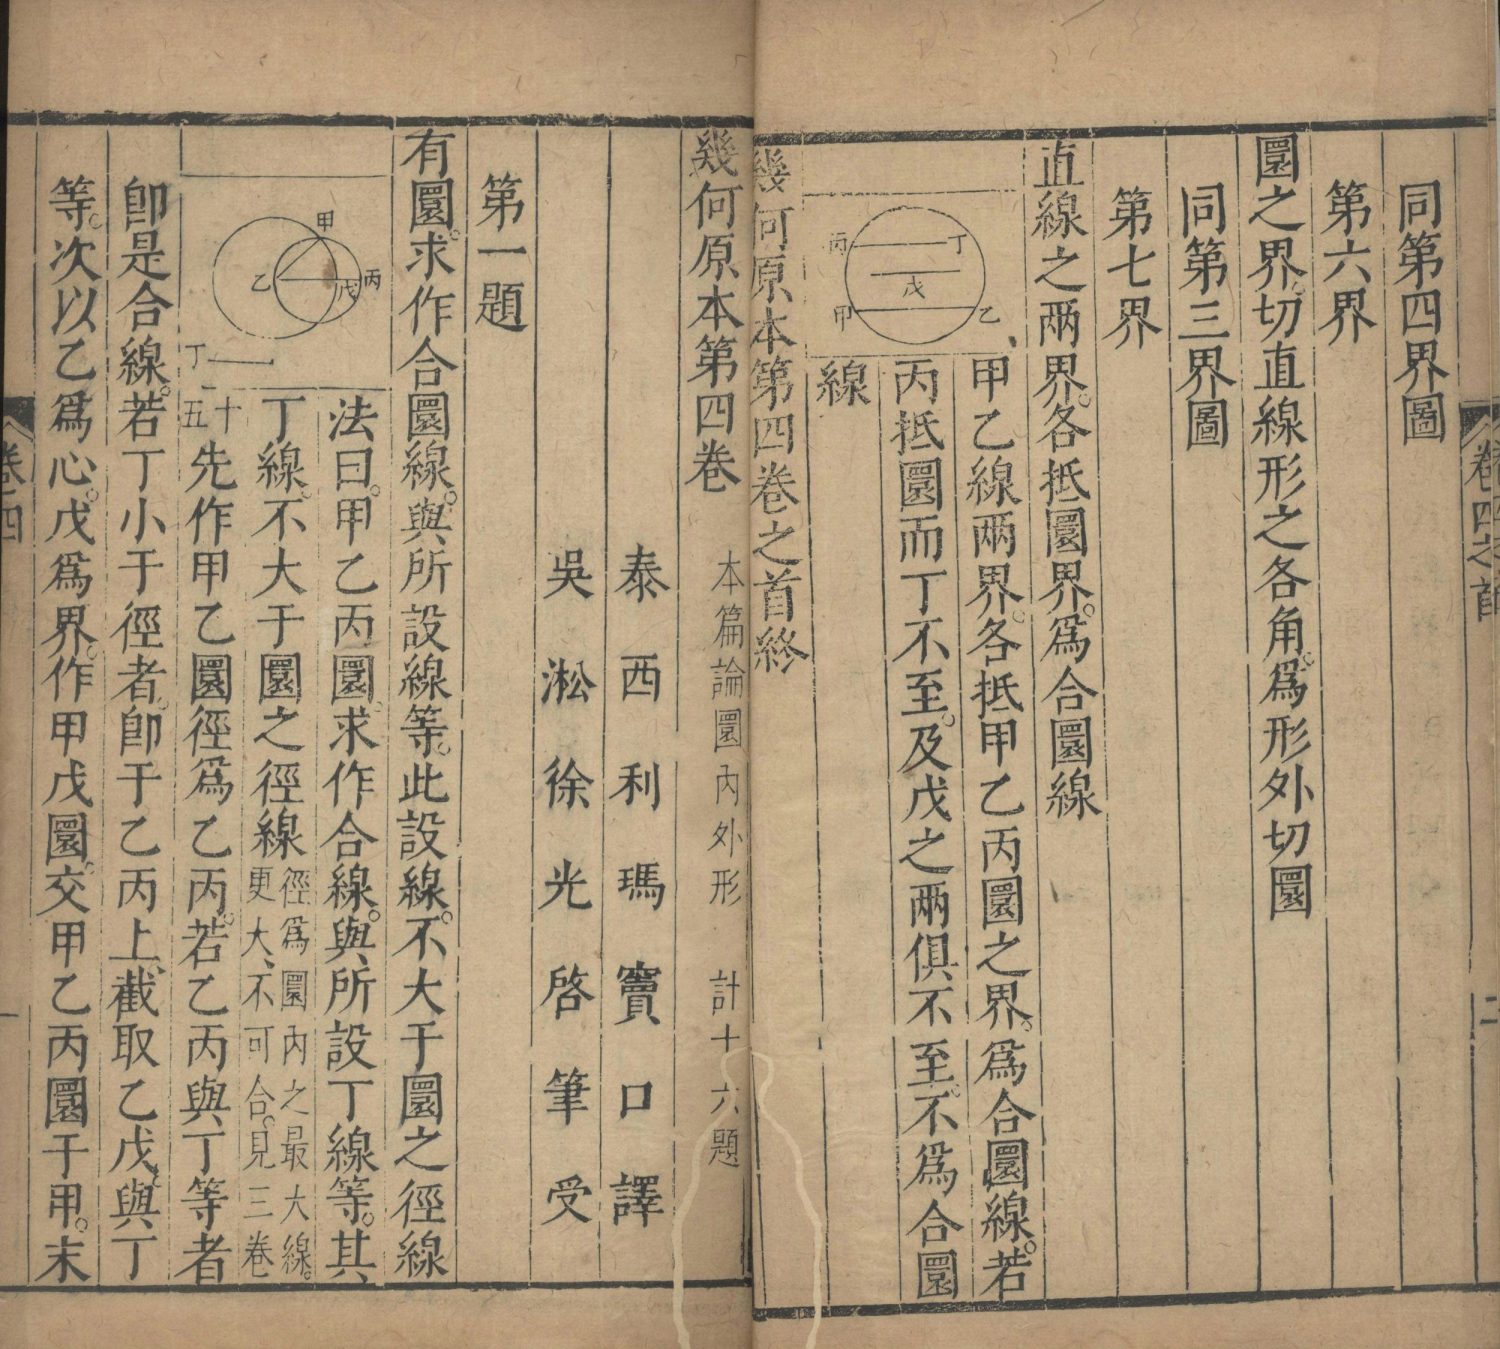 同第四界圖
第六界
圜之界切直線形之各角爲形外切圜
同第三界圖
第七界
直線之兩界各抵圜界爲合圜線
丙 丁
戊
甲 乙
甲乙線兩界各抵甲乙丙圜之界爲合圜線若
丙抵圜而丁不至及戊之兩俱不至不爲合圜
線
幾何原本第四卷之首終
卷四之首
二
幾何原本第四卷 本篇論圜内外形 計十六題
泰西利瑪竇口譯
吳淞徐光啓筆受
第一題
有圜求作合圜線與所設線等此設線不大于圜之徑線
甲
乙 戊 丙
丁
法曰甲乙丙圜求作合線與所設丁線等其
丁線不大于圜之徑線徑爲圜内之最大線更大不可合見三卷
十五先作甲乙圜徑爲乙丙若乙丙與丁等者
卽是合線若丁小于徑者卽于乙丙上截取乙戊與丁
等次以乙爲心戊爲界作甲戊圜交甲乙丙圜于甲末
卷四
一